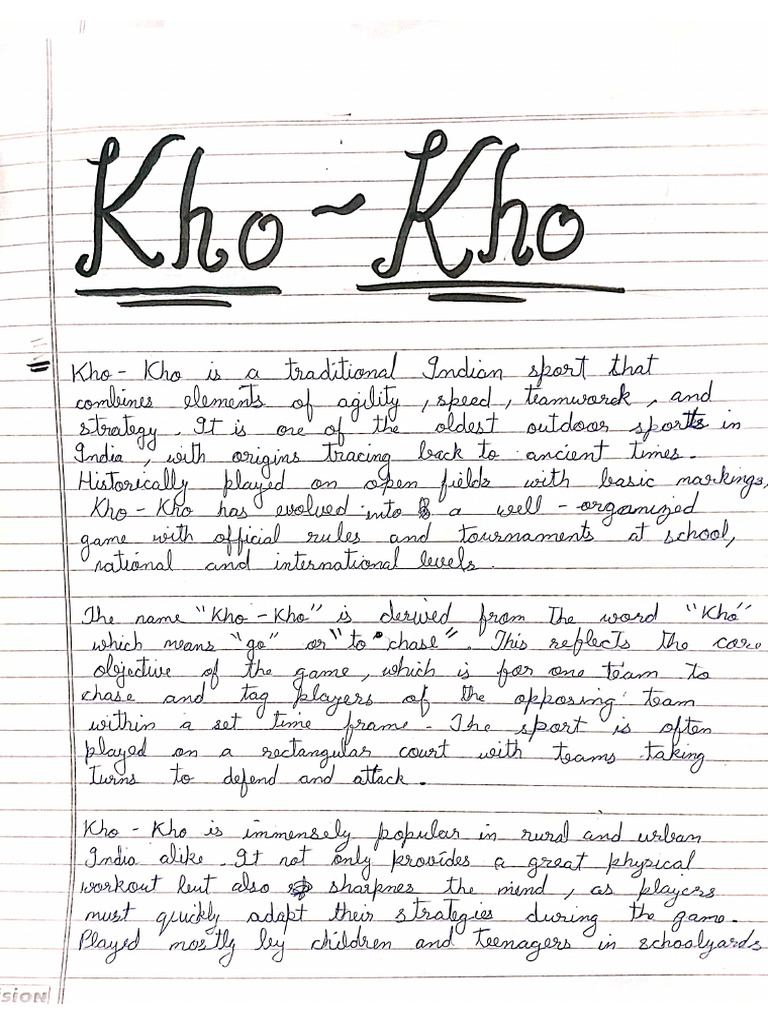 Kho ~ Kho
Kho - Kho is a traditional Indian sport that
combines elements of agility , speed , teamwork , and
strategy . It is one of the oldest outdoor sports in
India , with origins tracing back to ancient times .
Historically played on open fields with basic markings,
Kho - Kho has evolved into a well - organized
game with official rules and tournaments at school,
national and international levels .
The name "Kho - Kho" is derived from the word "Kho"
which means "go" or "to chase" . This reflects the core
objective of the game , which is for one team to
chase and tag players of the opposing team
within a set time frame - The sport is often
played on a rectangular court with teams taking
turns to defend and attack .
Kho - Kho is immensely popular in rural and urban
India alike . It not only provides a great physical
workout but also sharpnes the mind , as players
must quickly adapt their strategies during the game .
Played mostly by children and teenagers in schoolyards
SION